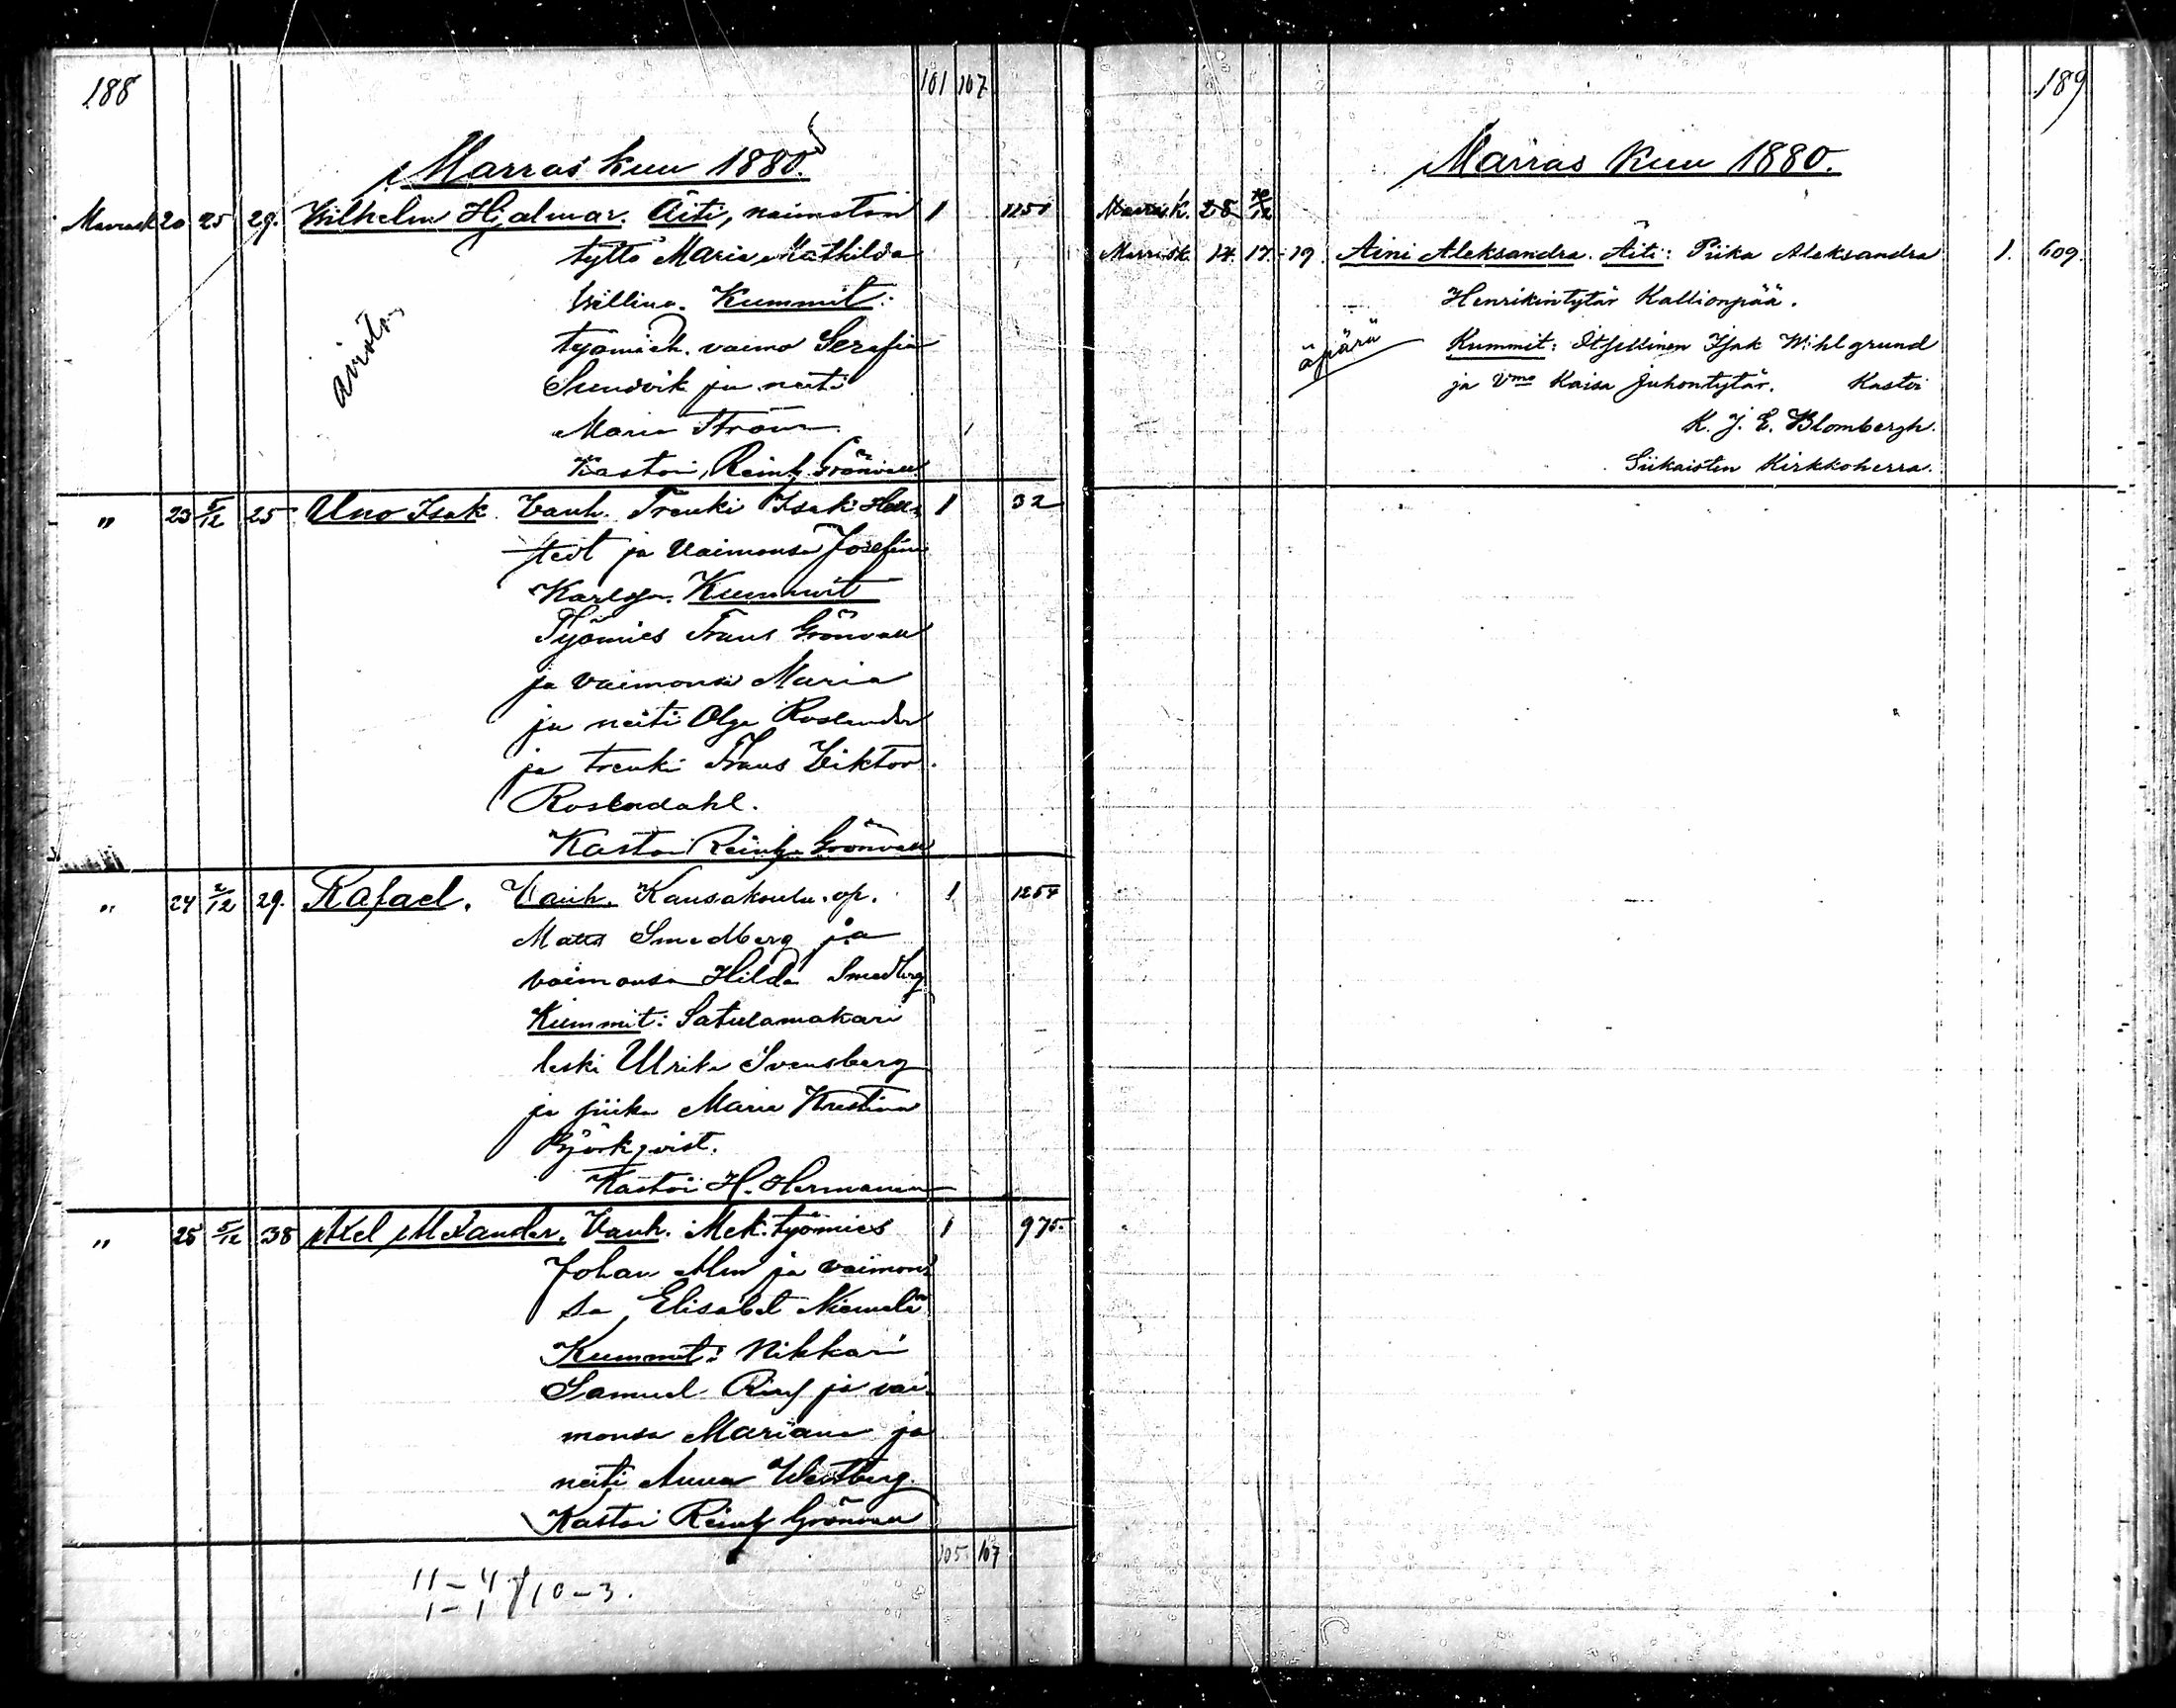 188
101 107
Marraskuu 1880.
Marrask 20 25 29. Wilhelm Hjalmar. Äiti, naimaton 1 1251
tyttö Maria Mathilda
Willina. Kummit:
työmieh. vaimo Serafia
Sundvik ja neiti
Maria Ström.
Kastoi, Reinh. Grönvall
" 23 5/12 25 Uno Isak. Vanh. Trenki Isak Hell- 1 32
stedt ja Vaimonsa Josefina
Kummit
Työmies Frans Grönvall
ja vaimonsa Maria
ja neiti Olga Roslander
ja trenki Frans Viktor
Rosendahl.
Kastoi Reinh. Grönvall
" 24 2/12 29. Rafael. Vanh. Kansakoulu. op. 1 1254
Matts Smedberg ja
vaimonsa Hilda Smedberg
Kummit: Satulamakari
leski Ulrika Svensberg
ja piika Maria Kristina
Björkqvist.
Kastoi H. Hermanen
" 25 5/12 38 Axel Alexander. Vanh. Mek. työmies 1 975.
Johan Alm ja vaimon-
sa Elisabet Niemelä
Kummit: Nikkari
Samuel Ring ja vai-
monsa Mariana ja
neiti Anna Westberg.
Kastoi Reinh Grönvall
105 107
11-4 10-3.
1-1
189
Marraskuu 1880.
Marrask. 28
Marrask. 14. 17. 19. Aini Aleksandra. Äiti: Piika Aleksandra 1. 609.
Henrikintytär Kallionpää.
äpärä Kummit: Itsellinen Isak Wihlgrund
ja Vmo Kaisa Juhontytär. Kastoi
K. J. E. Blombergh.
Siikaisten Kirkkoherra.